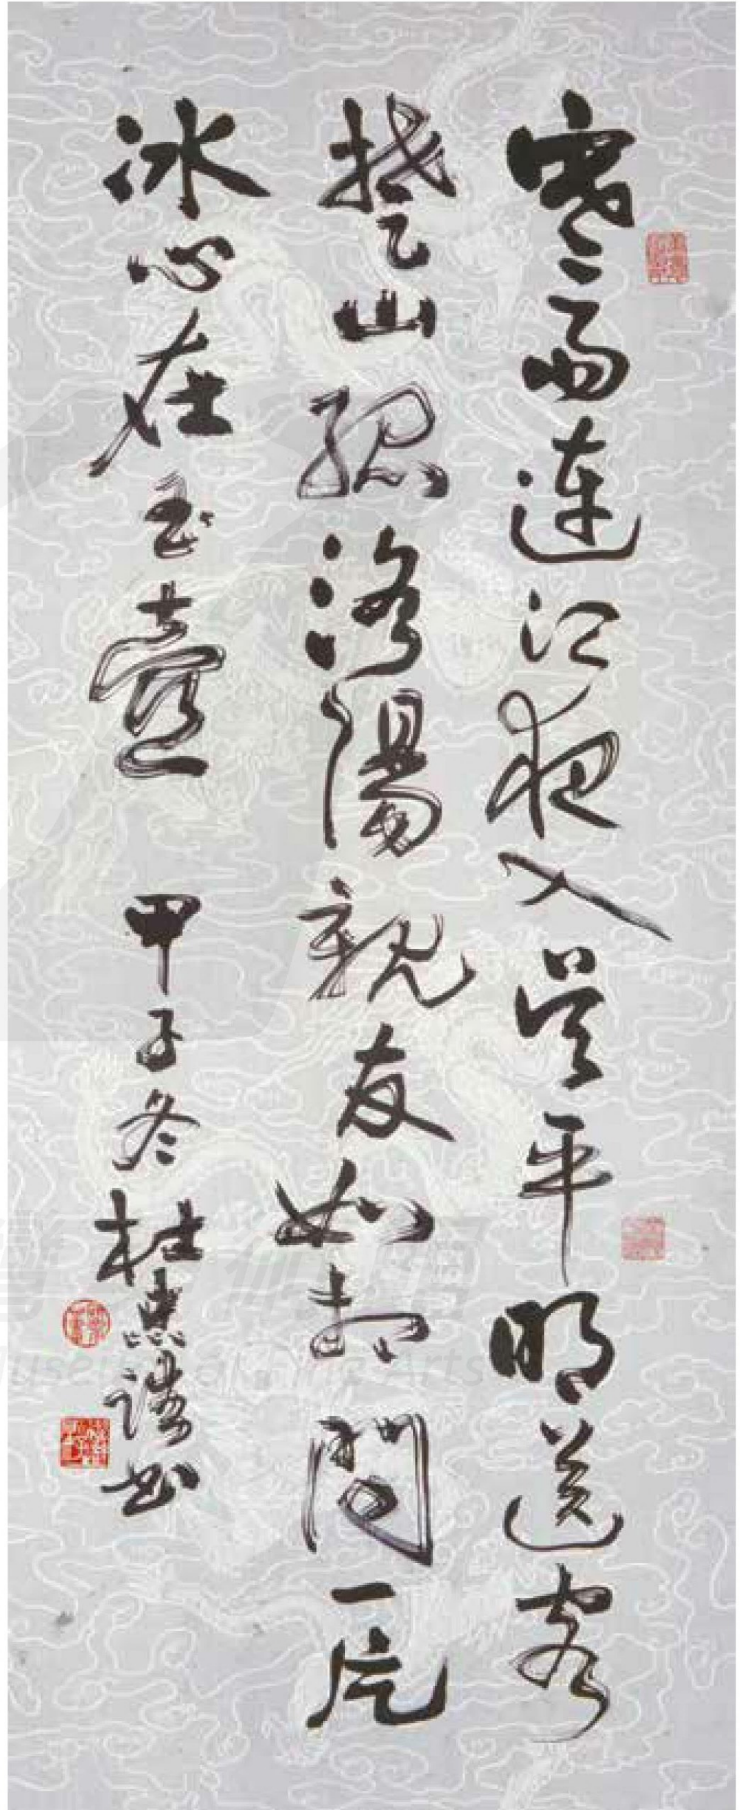 寒雨連江夜入吳平明送客
楚山孤洛陽親友如相問一片
冰心在玉壺 甲子冬杜忠誥書